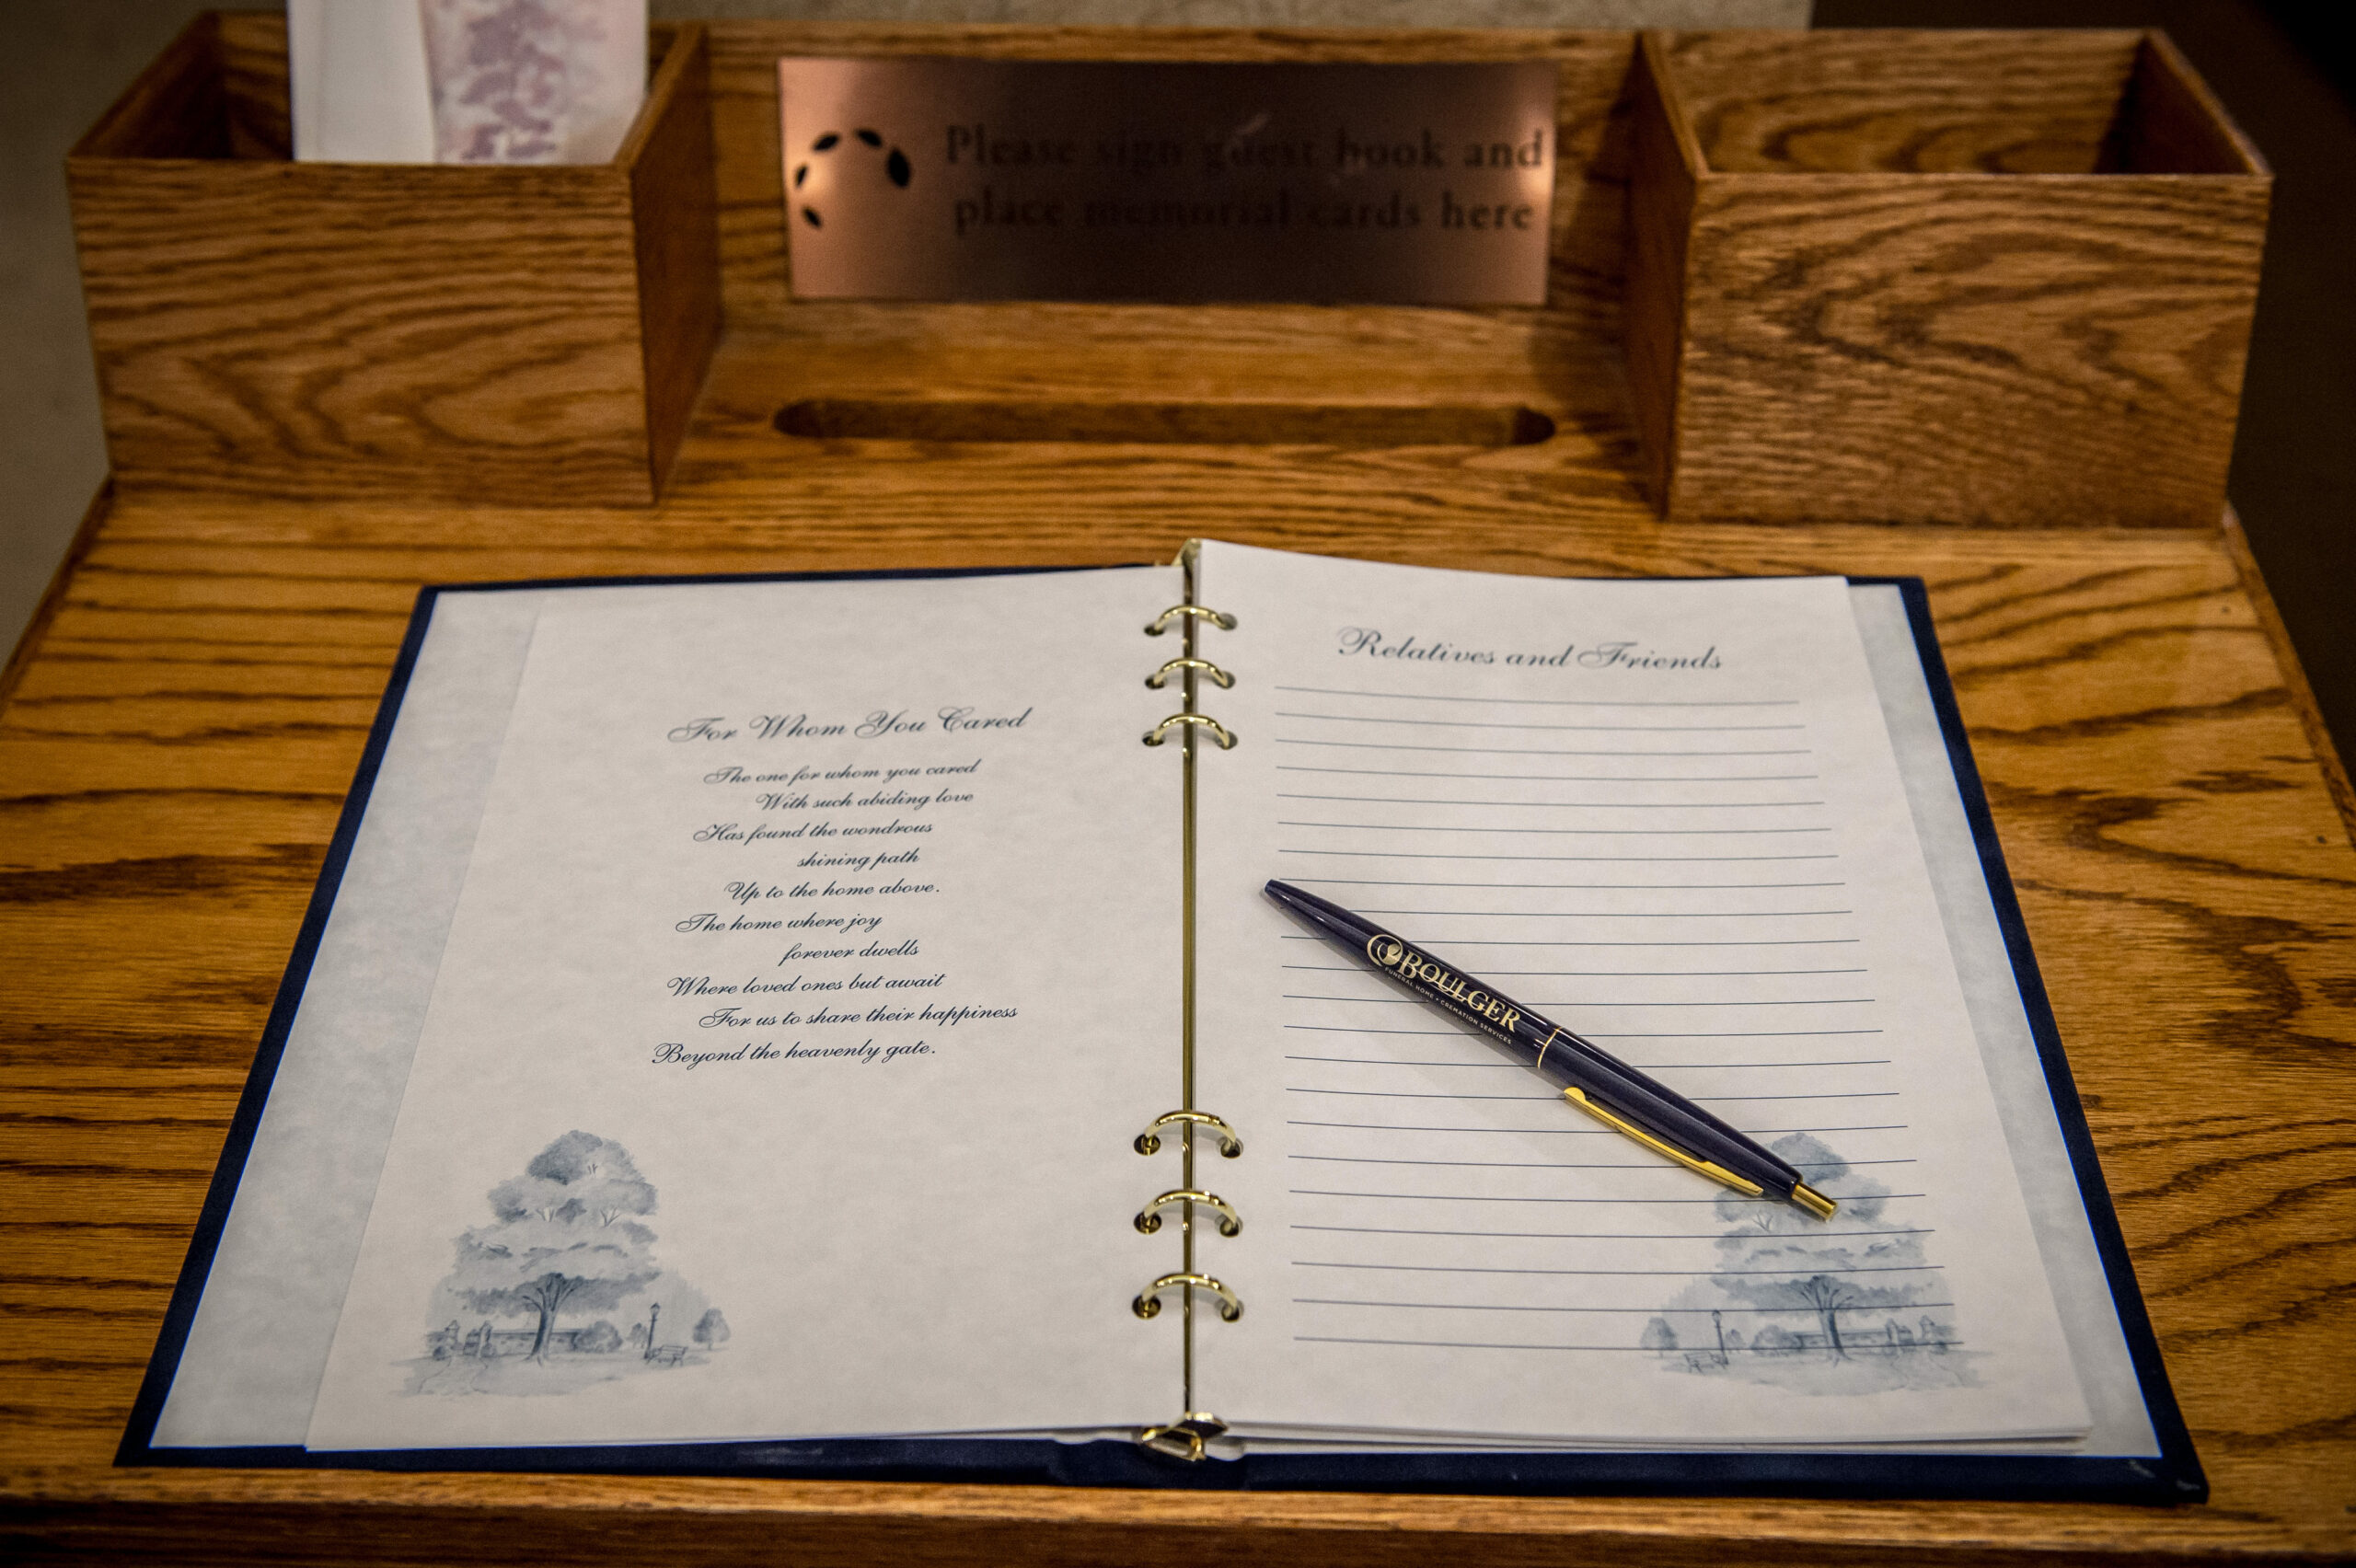 Please sign guest book and
place memorial cards here
For Whom You Cared
The one for whom you cared
With such abiding love
Has found the wondrous
shining path
Up to the home above.
The home where joy
forever dwells
Where loved ones but await
For us to share their happiness
Beyond the heavenly gate.
Relatives and Friends
BOULGER
FUNERAL HOME • CREMATION SERVICES